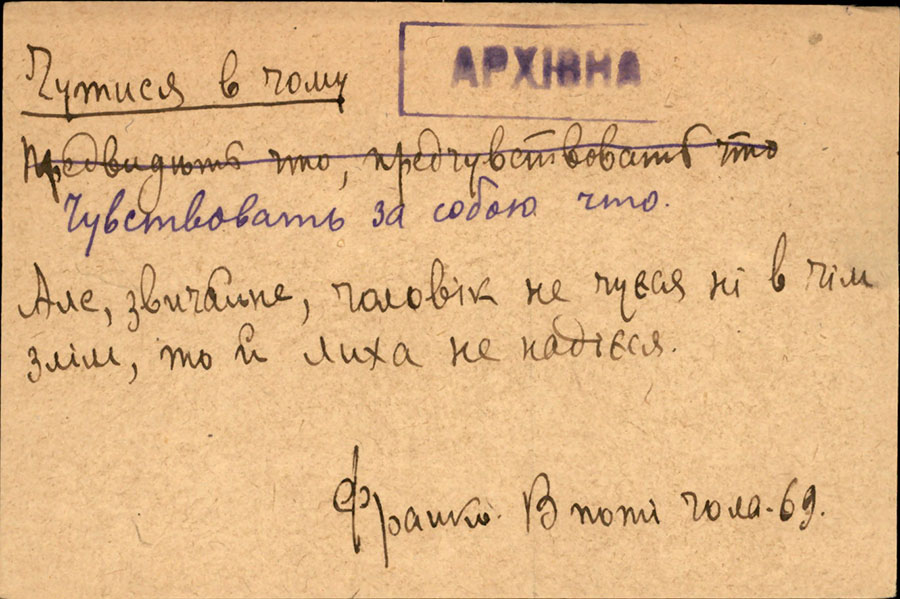 АРХІВНА
Чутися в чому
Предвидѣть что, предчувствовать что
Чувствовать за собою что.
Але, звичайне, чоловік не чуєся ні в чім
злім, то й лиха не надієся.
Франко. В поті чола-69.